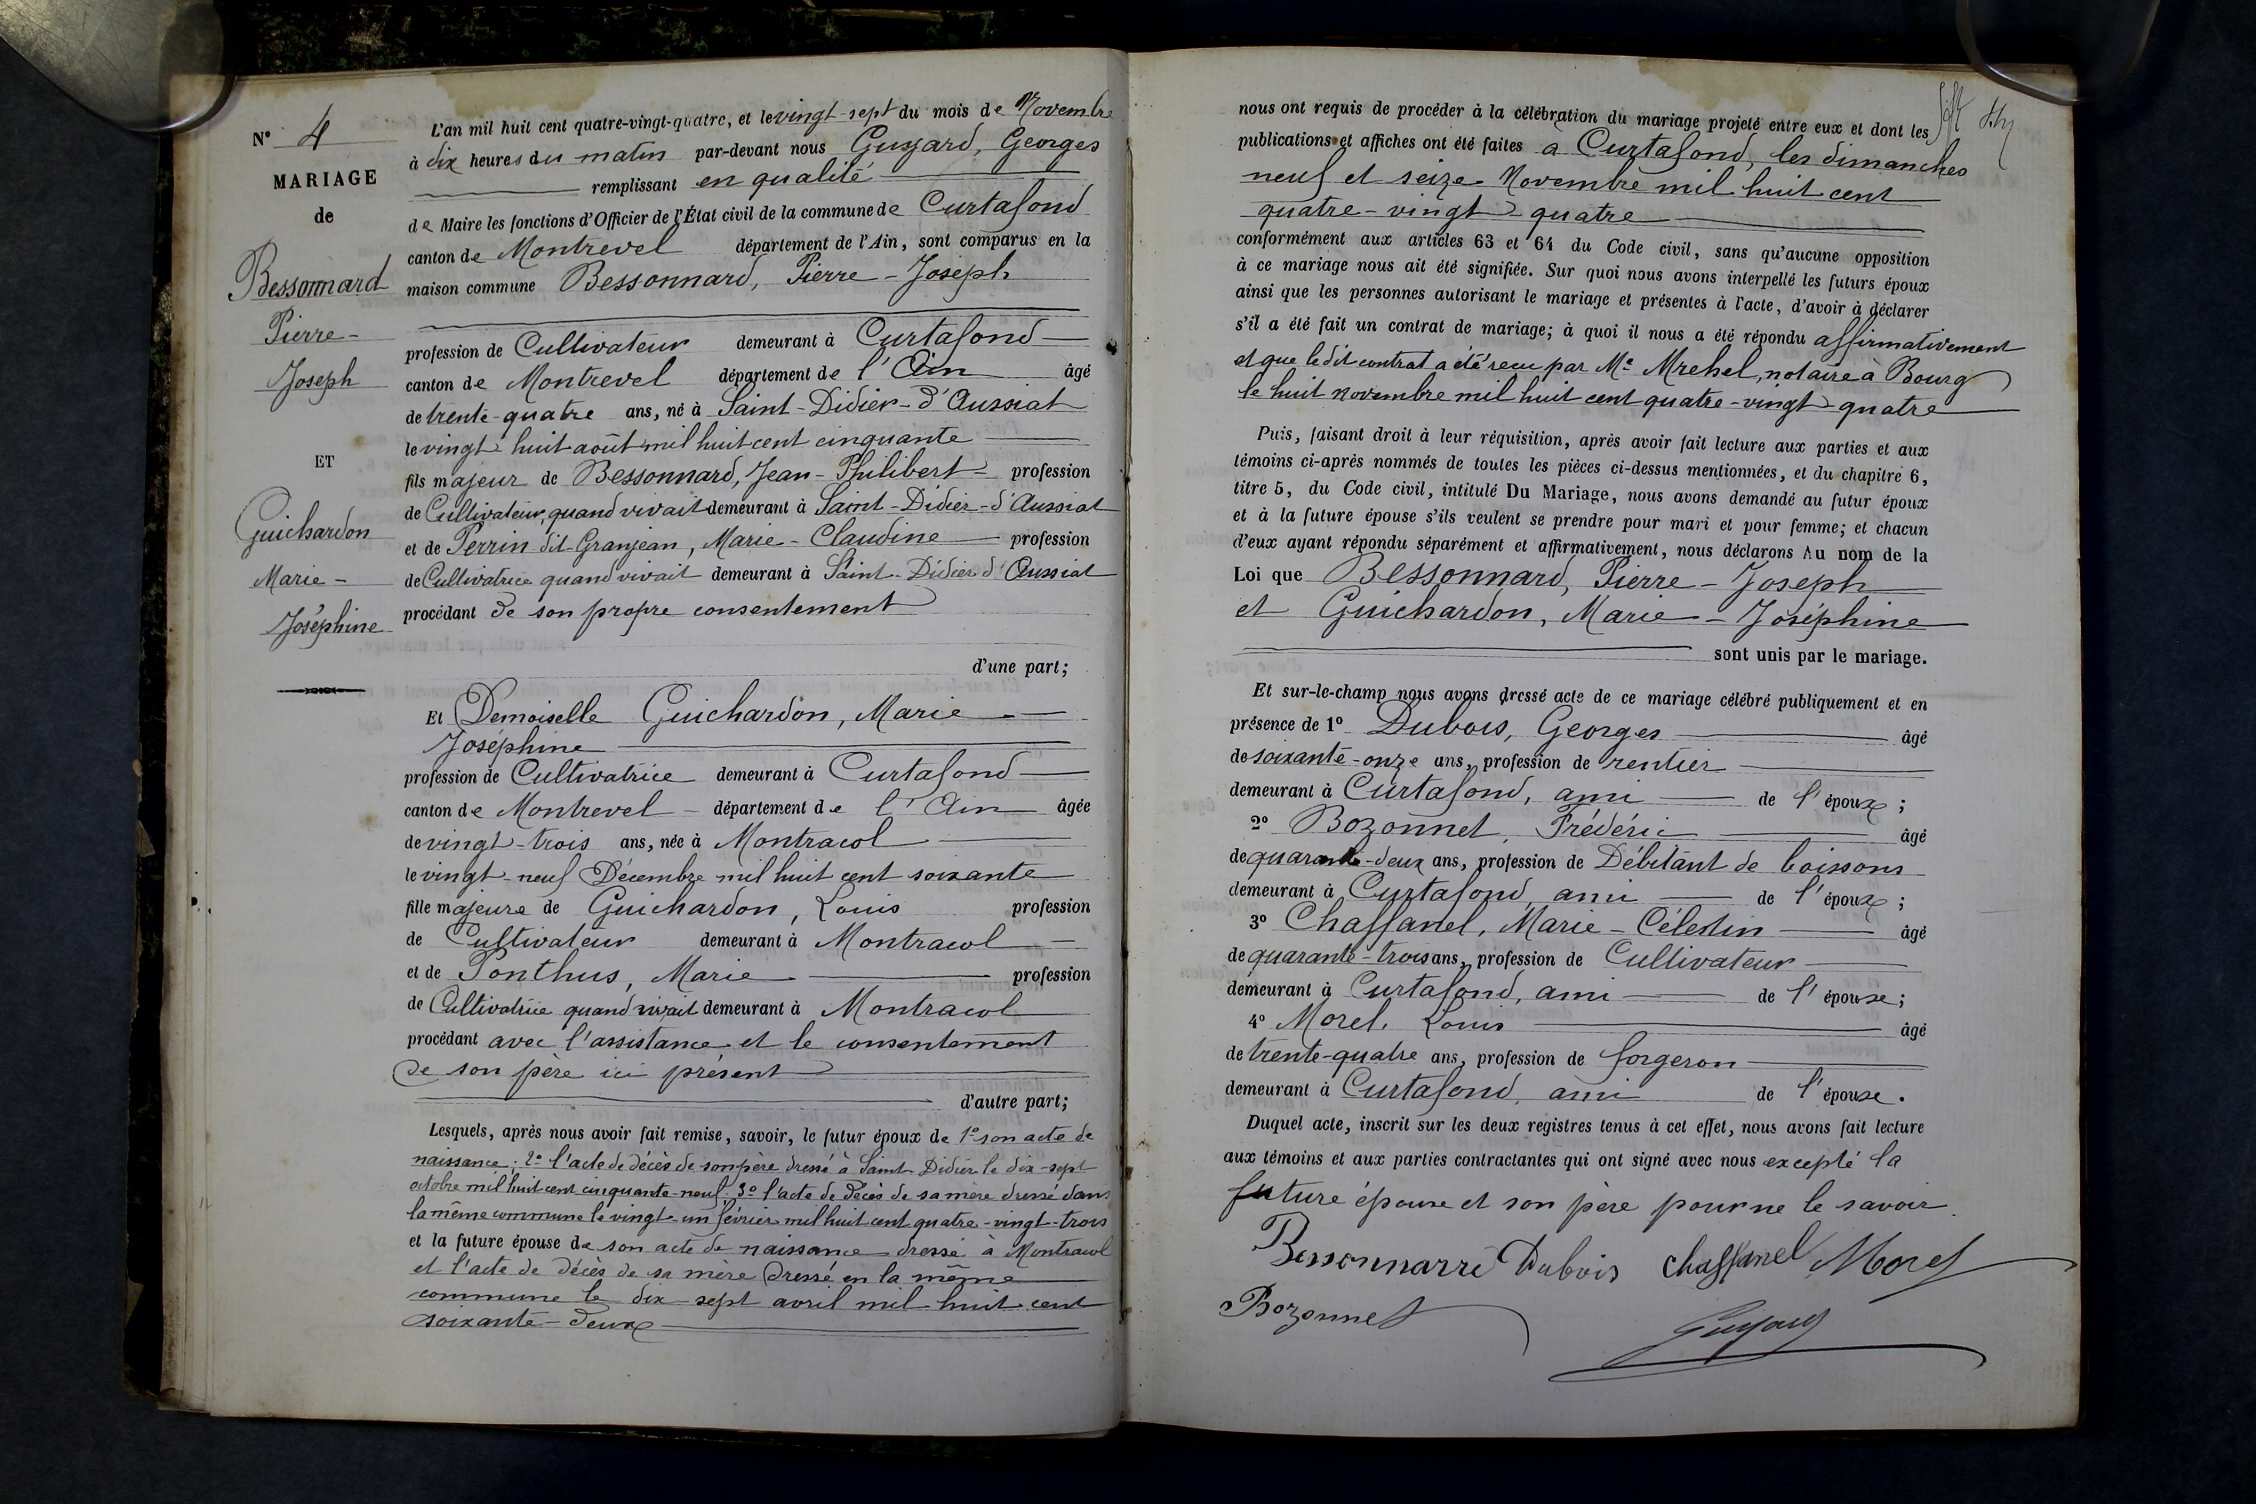 N° 4
MARIAGE
de
Bessonnard
Pierre -
Joseph
ET
Guichardon
Marie -
Joséphine
L'an mil huit cent quatre-vingt-quatre, et le vingt-sept du mois de Novembre
à dix heures du matin par-devant nous Guyard, Georges
remplissant en qualité
de Maire les fonctions d'Officier de l'État civil de la commune de Curtafond
canton de Montrevel département de l'Ain, sont comparus en la
maison commune Bessonnard, Pierre - Joseph
profession de Cultivateur demeurant à Curtafond
canton de Montrevel département de l'Ain âgé
de trente-quatre ans, né à Saint-Didier-d'Aussiat
le vingt huit août mil huit cent cinquante
fils majeur de Bessonnard, Jean-Philibert profession
de Cultivateur, quand vivait demeurant à Saint-Didier-d'Aussiat
et de Perrin dit Granjean, Marie-Claudine profession
de Cultivatrice quand vivait demeurant à Saint-Didier d'Aussiat
procédant de son propre consentement
d'une part;
Et Demoiselle Guichardon, Marie -
Joséphine
profession de Cultivatrice demeurant à Curtafond
canton de Montrevel département de l'Ain âgée
de vingt-trois ans, née à Montracol
le vingt-neuf Décembre mil huit cent soixante
fille majeure de Guichardon, Louis profession
de Cultivateur demeurant à Montracol
et de Ponthus, Marie profession
de Cultivatrice quand vivait demeurant à Montracol
procédant avec l'assistance et le consentement
de son père ici présent
d'autre part;
Lesquels, après nous avoir fait remise, savoir, le futur époux de 1° son acte de
naissance; 2° l'acte de décès de son père dressé à Saint-Didier le dix-sept
octobre mil huit cent cinquante-neuf. 3° l'acte de décès de sa mère dressé dans
la même commune le vingt-un février mil huit cent quatre-vingt-trois
et la future épouse de son acte de naissance dressé à Montracol
et l'acte de décès de sa mère dressé en la même
commune le dix-sept avril mil huit cent
soixante-deux
nous ont requis de procéder à la célébration du mariage projeté entre eux et dont les
publications et affiches ont été faites à Curtafond, les dimanches
neuf et seize Novembre mil huit cent
quatre-vingt quatre
conformément aux articles 63 et 64 du Code civil, sans qu'aucune opposition
à ce mariage nous ait été signifiée. Sur quoi nous avons interpellé les futurs époux
ainsi que les personnes autorisant le mariage et présentes à l'acte, d'avoir à déclarer
s'il a été fait un contrat de mariage; à quoi il nous a été répondu affirmativement
et que le dit contrat a été reçu par Me Mrehel, notaire à Bourg
le huit novembre mil huit cent quatre-vingt-quatre
Puis, faisant droit à leur réquisition, après avoir fait lecture aux parties et aux
témoins ci-après nommés de toutes les pièces ci-dessus mentionnées, et du chapitre 6,
titre 5, du Code civil, intitulé Du Mariage, nous avons demandé au futur époux
et à la future épouse s'ils veulent se prendre pour mari et pour femme; et chacun
d'eux ayant répondu séparément et affirmativement, nous déclarons Au nom de la
Loi que Bessonnard, Pierre - Joseph
et Guichardon, Marie - Joséphine
sont unis par le mariage.
Et sur-le-champ nous avons dressé acte de ce mariage célébré publiquement et en
présence de 1° Dubois, Georges âgé
de soixante-onze ans, profession de rentier
demeurant à Curtafond, ami de l'époux;
2° Bozonnet, Frédéric âgé
de quarante-deux ans, profession de Débitant de boissons
demeurant à Curtafond, ami de l'époux;
3° Chaffanel, Marie-Célestin âgé
de quarante-trois ans, profession de Cultivateur
demeurant à Curtafond, ami de l'épouse;
4° Morel, Louis âgé
de trente-quatre ans, profession de forgeron
demeurant à Curtafond, ami de l'épouse.
Duquel acte, inscrit sur les deux registres tenus à cet effet, nous avons fait lecture
aux témoins et aux parties contractantes qui ont signé avec nous excepté la
future épouse et son père pour ne le savoir.
Bessonnard Dubois Chaffanel Morel
Bozonnet
Guyard